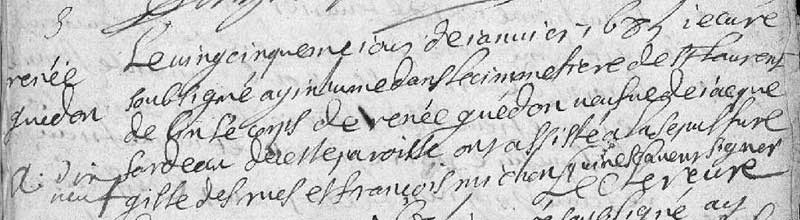 Le vingcinquieme jour de ianvier 1685 ie curé
renée soubsigné ay inhumé dans le cimmetiere de st laurent
guédon de lin le corps de renée guédon veufue de iacque
sardeau de cette paroisse ont assisté a la sepulture
gille desrues et françois michon qui ne sçavent signer
soubsigné ay